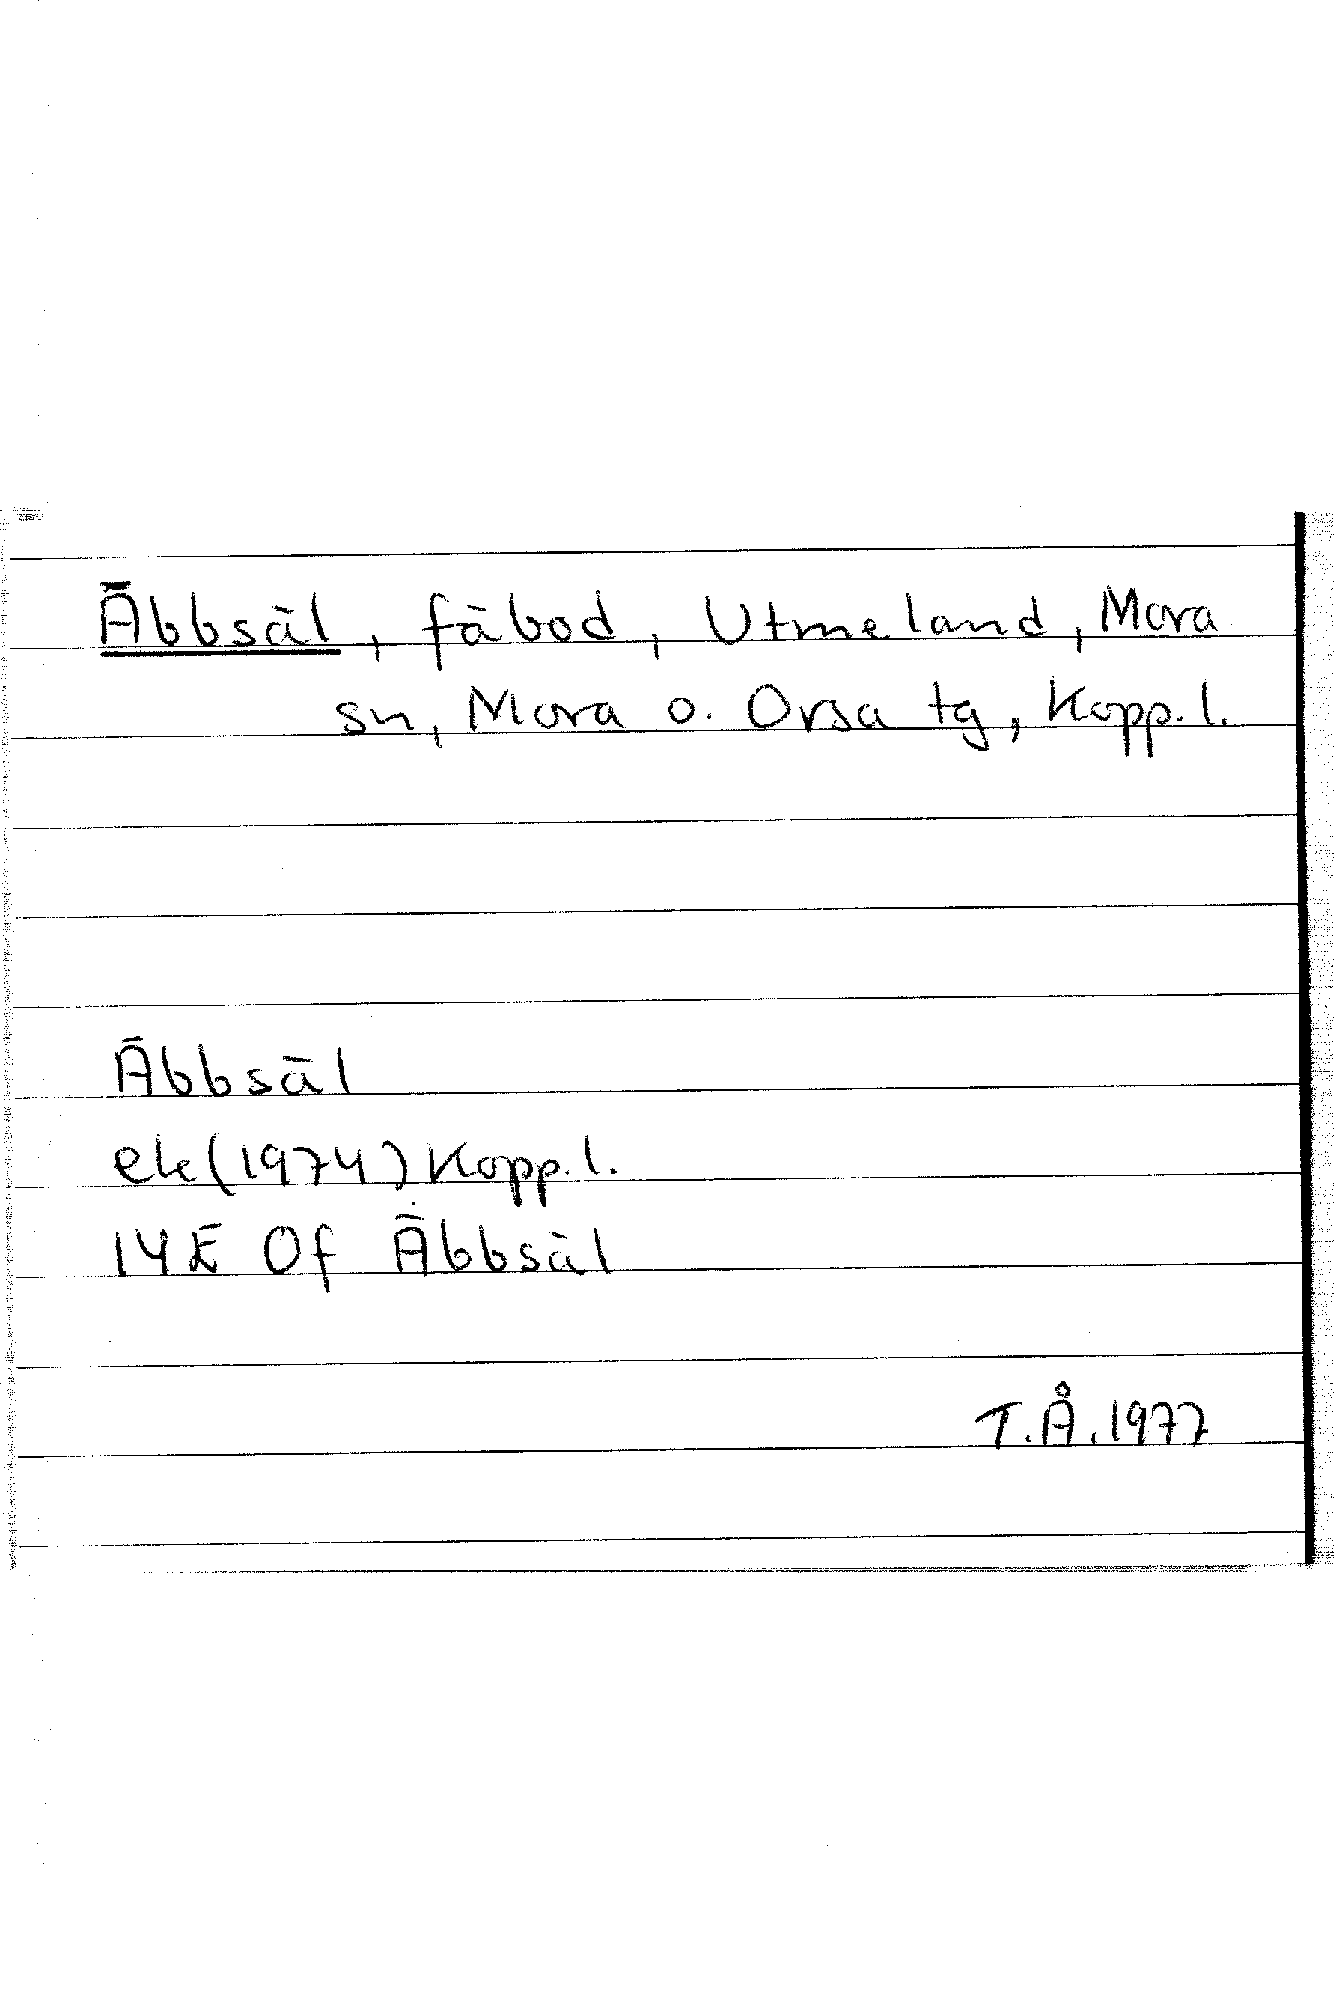 Äbbsäl, fäbod, Utmeland, Mora
sn, Mora o. Orsa tg, Kopp.l.
Äbbsäl
ek(1974) Kopp.l.
14E 0f Äbbsäl
T.Å.1977